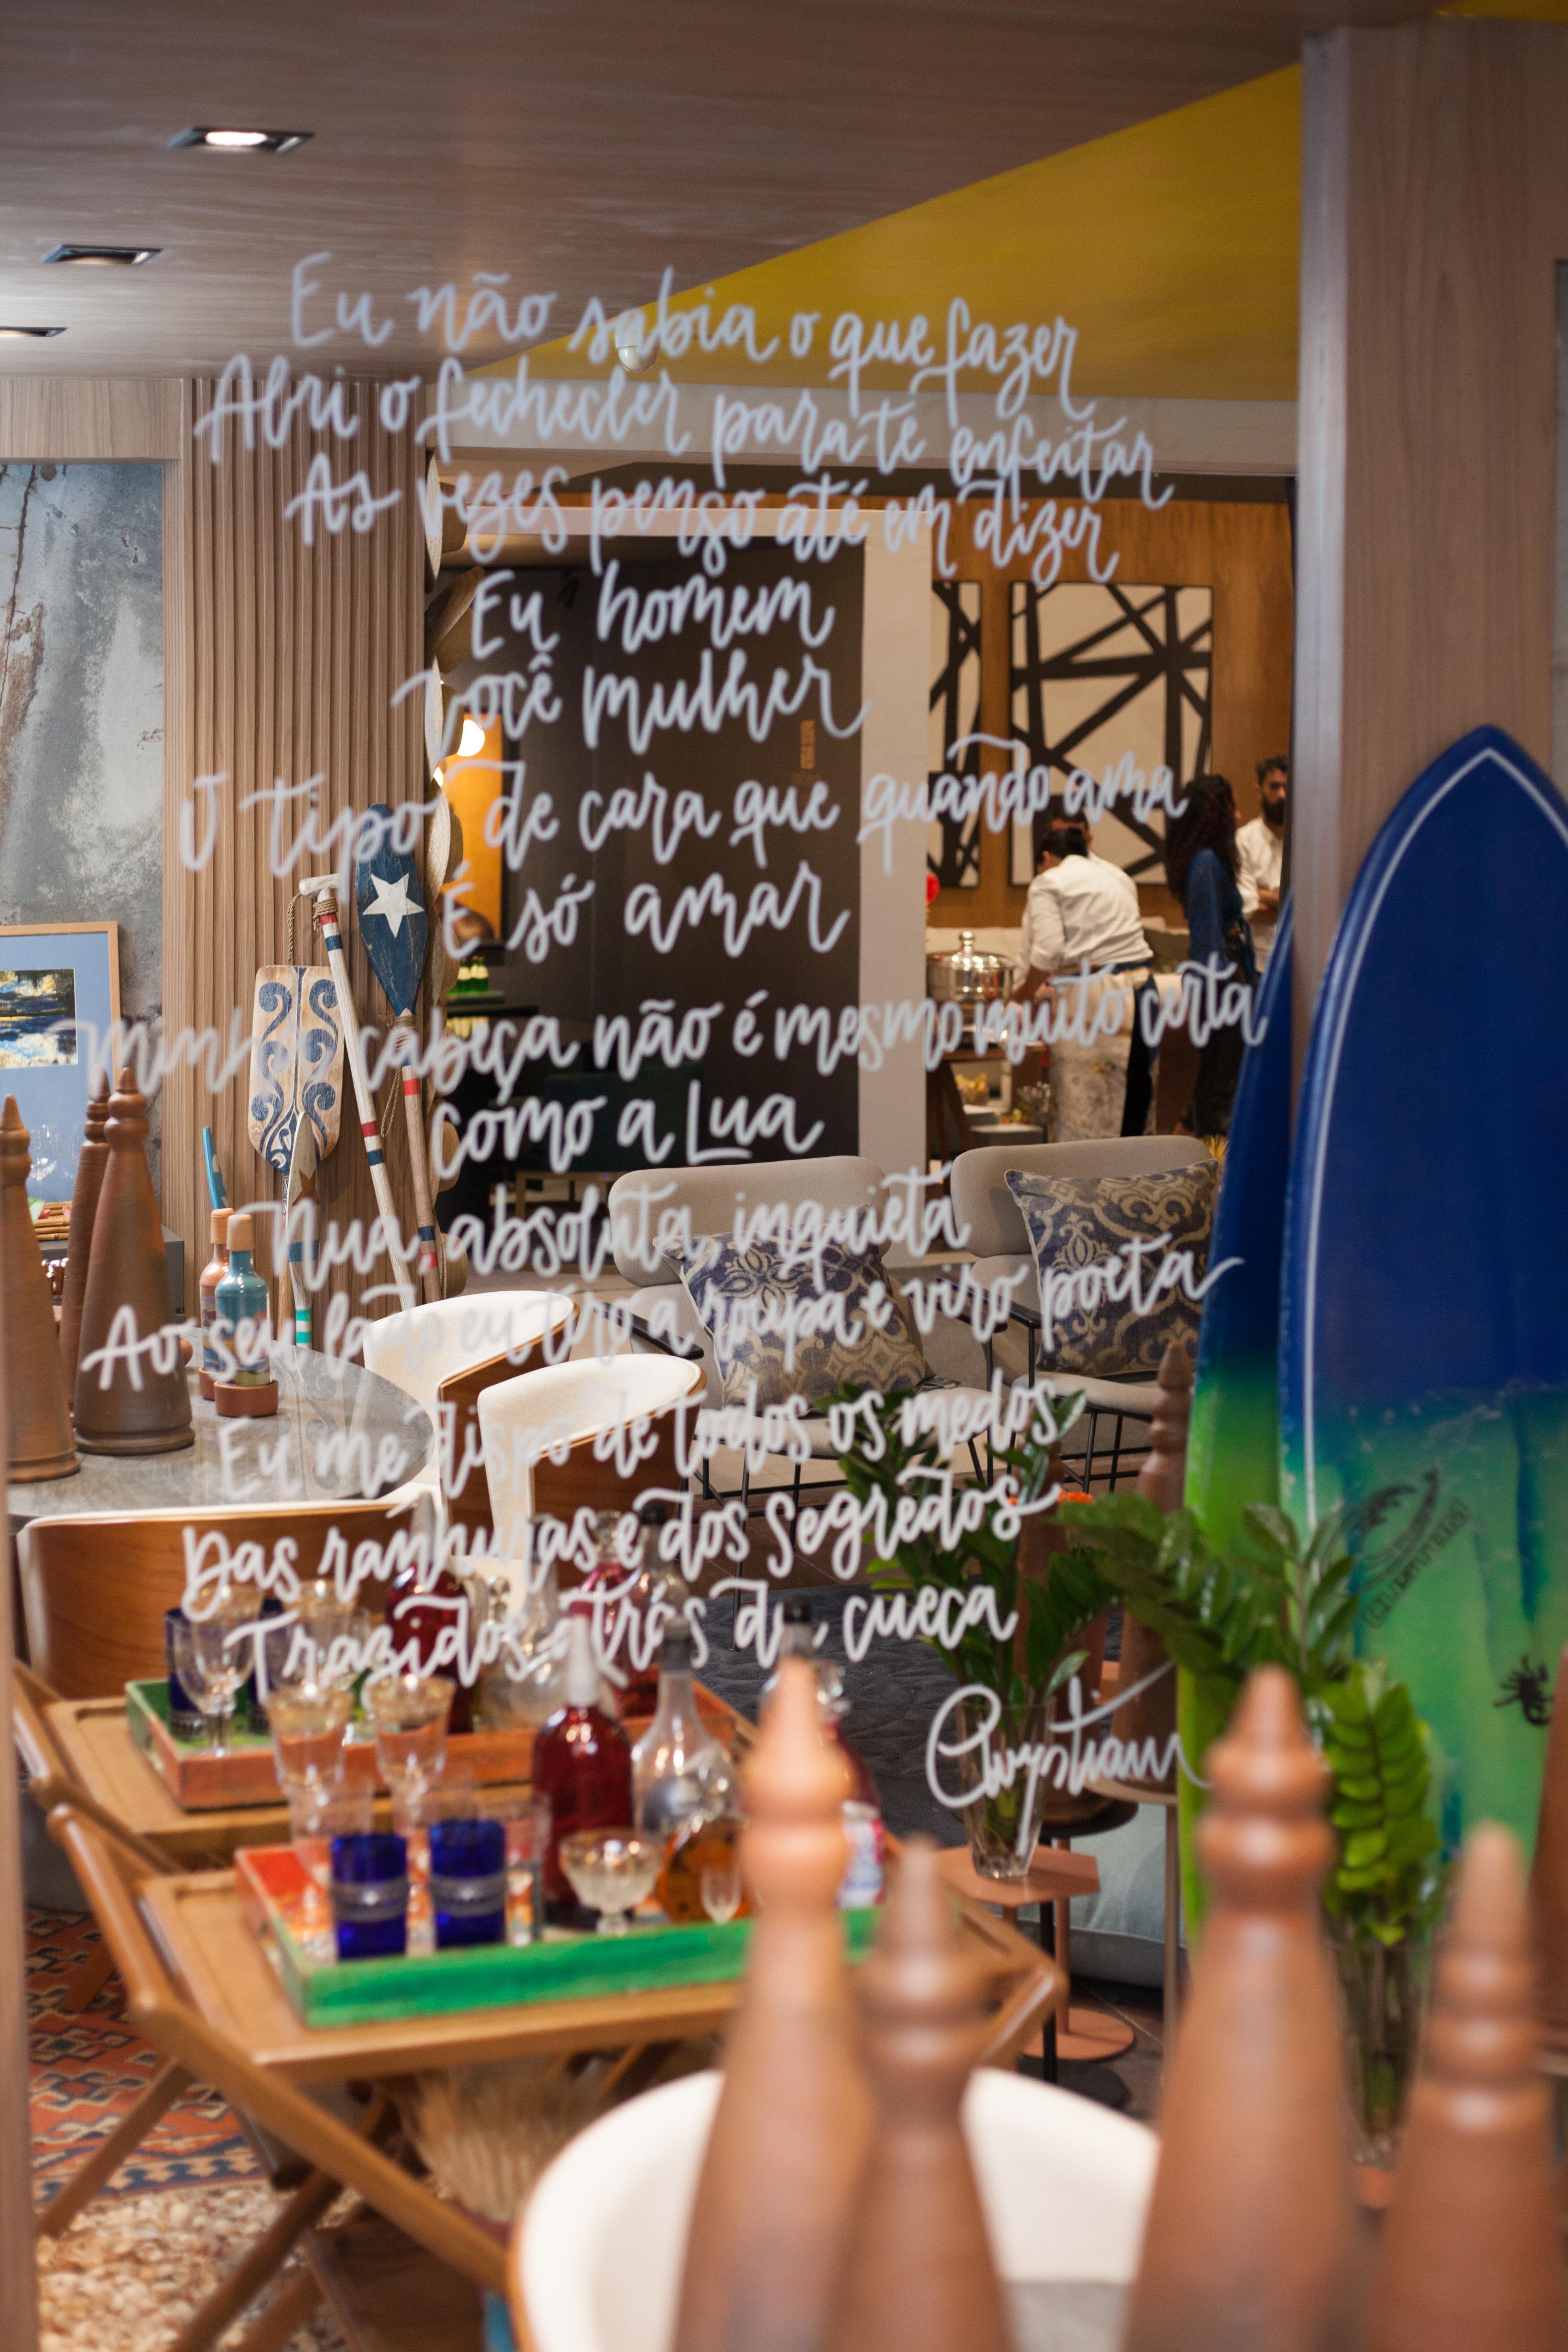 Eu não sabia o que fazer
Abri o fechecler para te enfeitar
As vezes penso até em dizer
Eu homem
você mulher
O tipo de cara que quando ama
É só amar
Minha cabeça não é mesmo muito certa
como a Lua
Nua, absoluta, inquieta
Ao seu lado eu tiro a roupa e viro poeta
Eu me dispo de todos os medos
Das ranhuras e dos segredos
Trazidos atrás da cueca
Chrystian